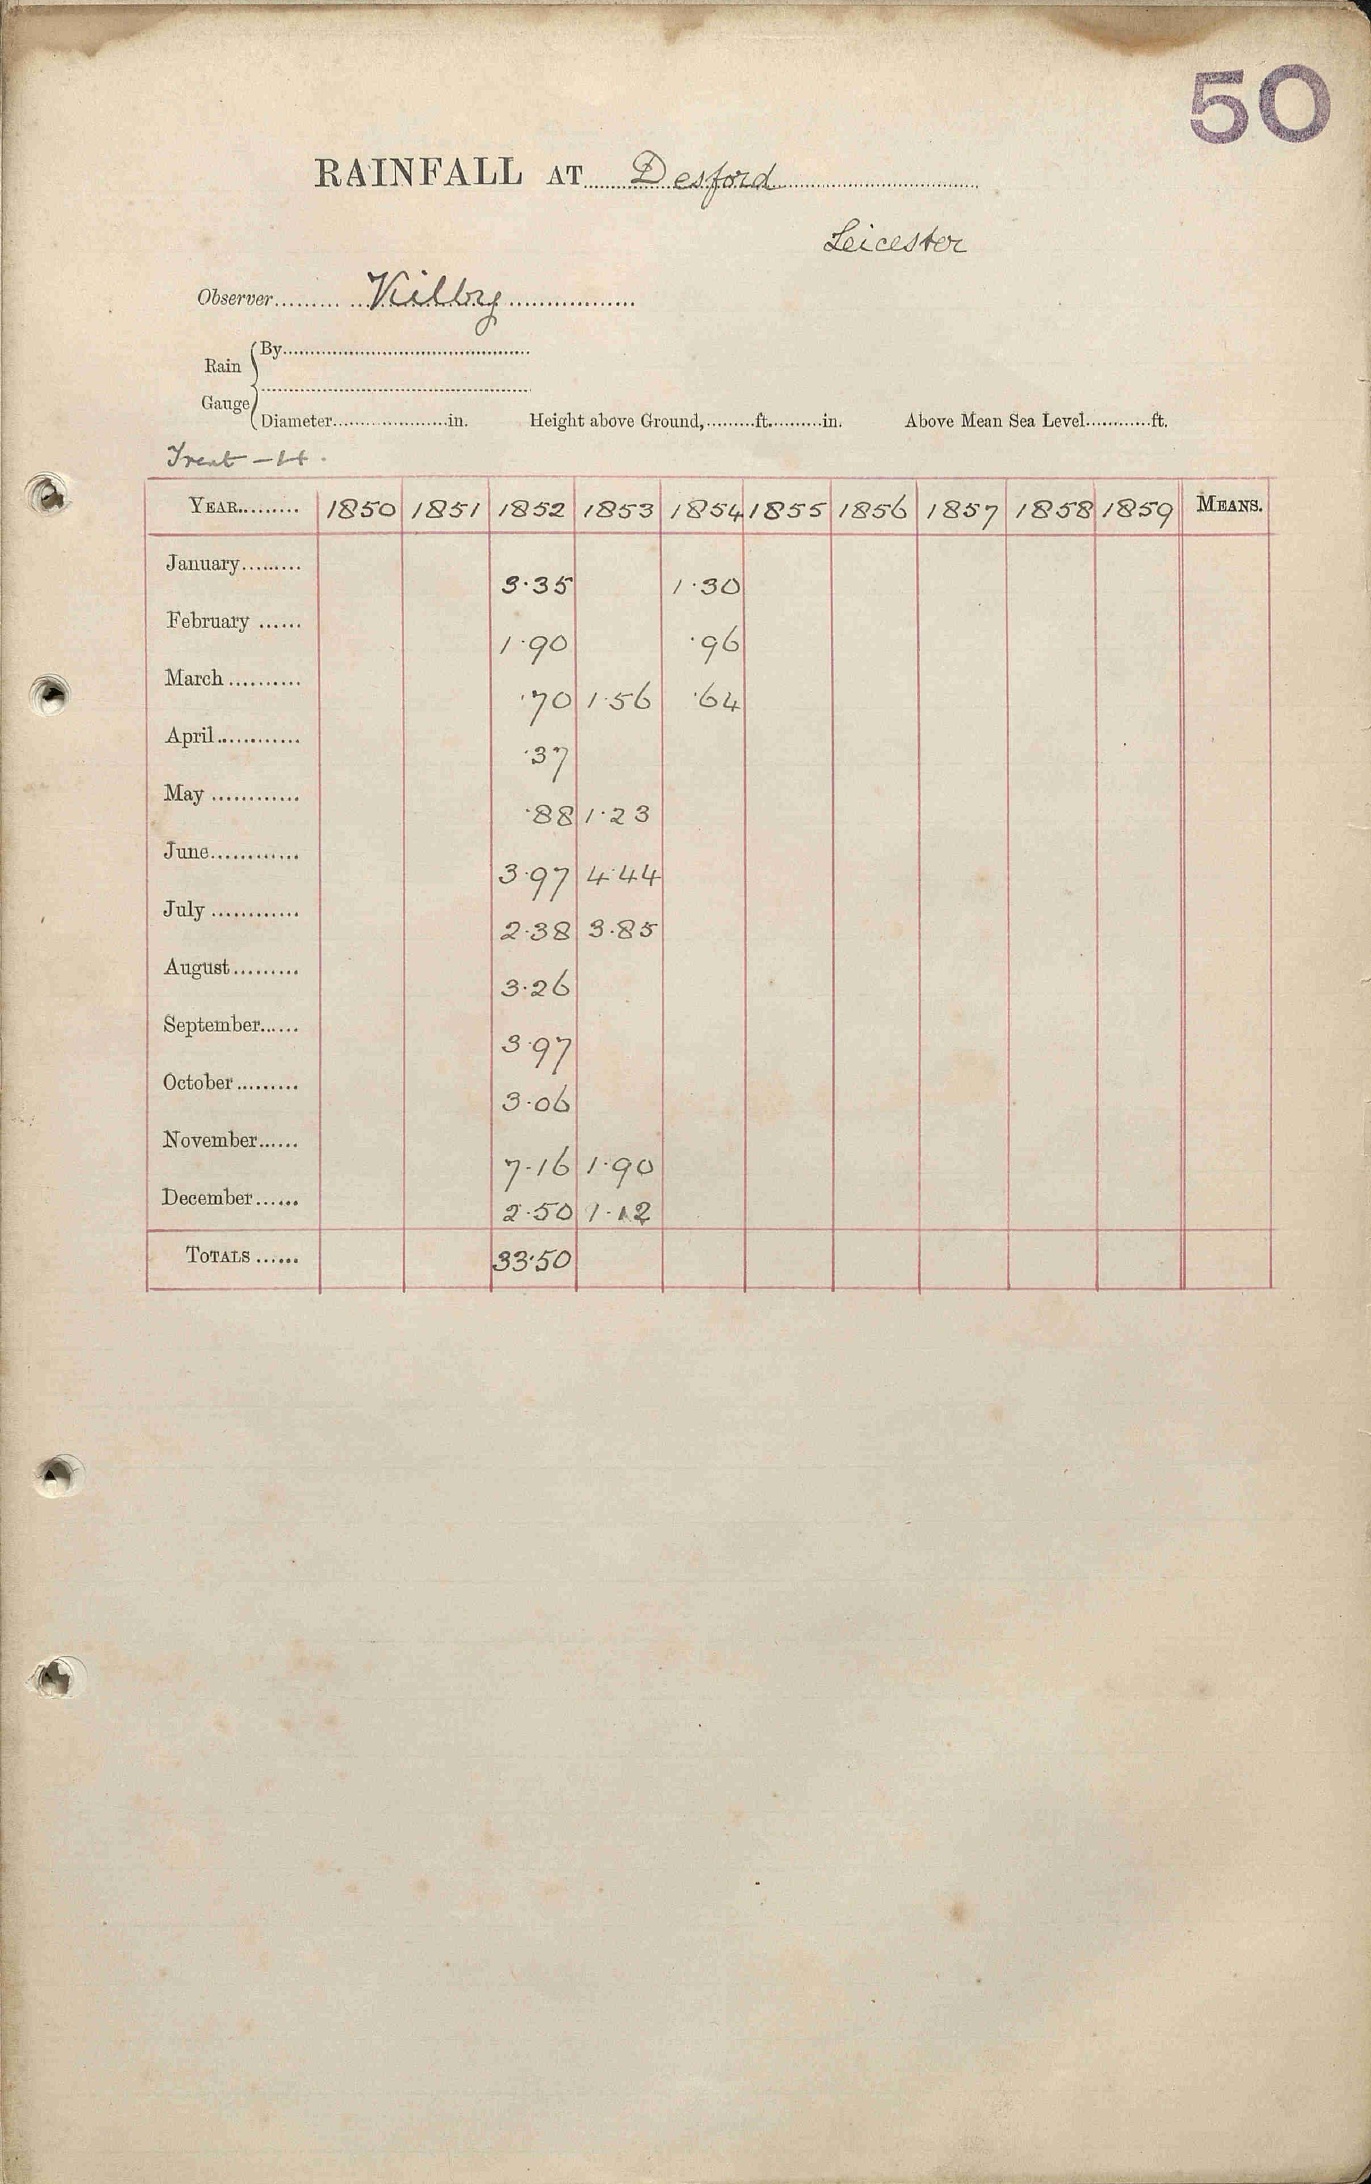 50
RAINFALL AT Desford
Leicester
Observer Kilby
Rain Gauge
By
Diameter in. Height above Ground, ft. in. Above Mean Sea Level ft.
Trent
YEAR 1850 1851 1852 1853 1854 1855 1856 1857 1858 1859 MEANS.
January 3.35 1.30
February 1.90 .96
March .70 1.56 .64
April .37
May .88 1.23
June 3.97 4.44
July 2.38 3.85
August 3.26
September 3.97
October 3.06
November 7.16 1.90
December 2.50 1.12
TOTALS 33.50